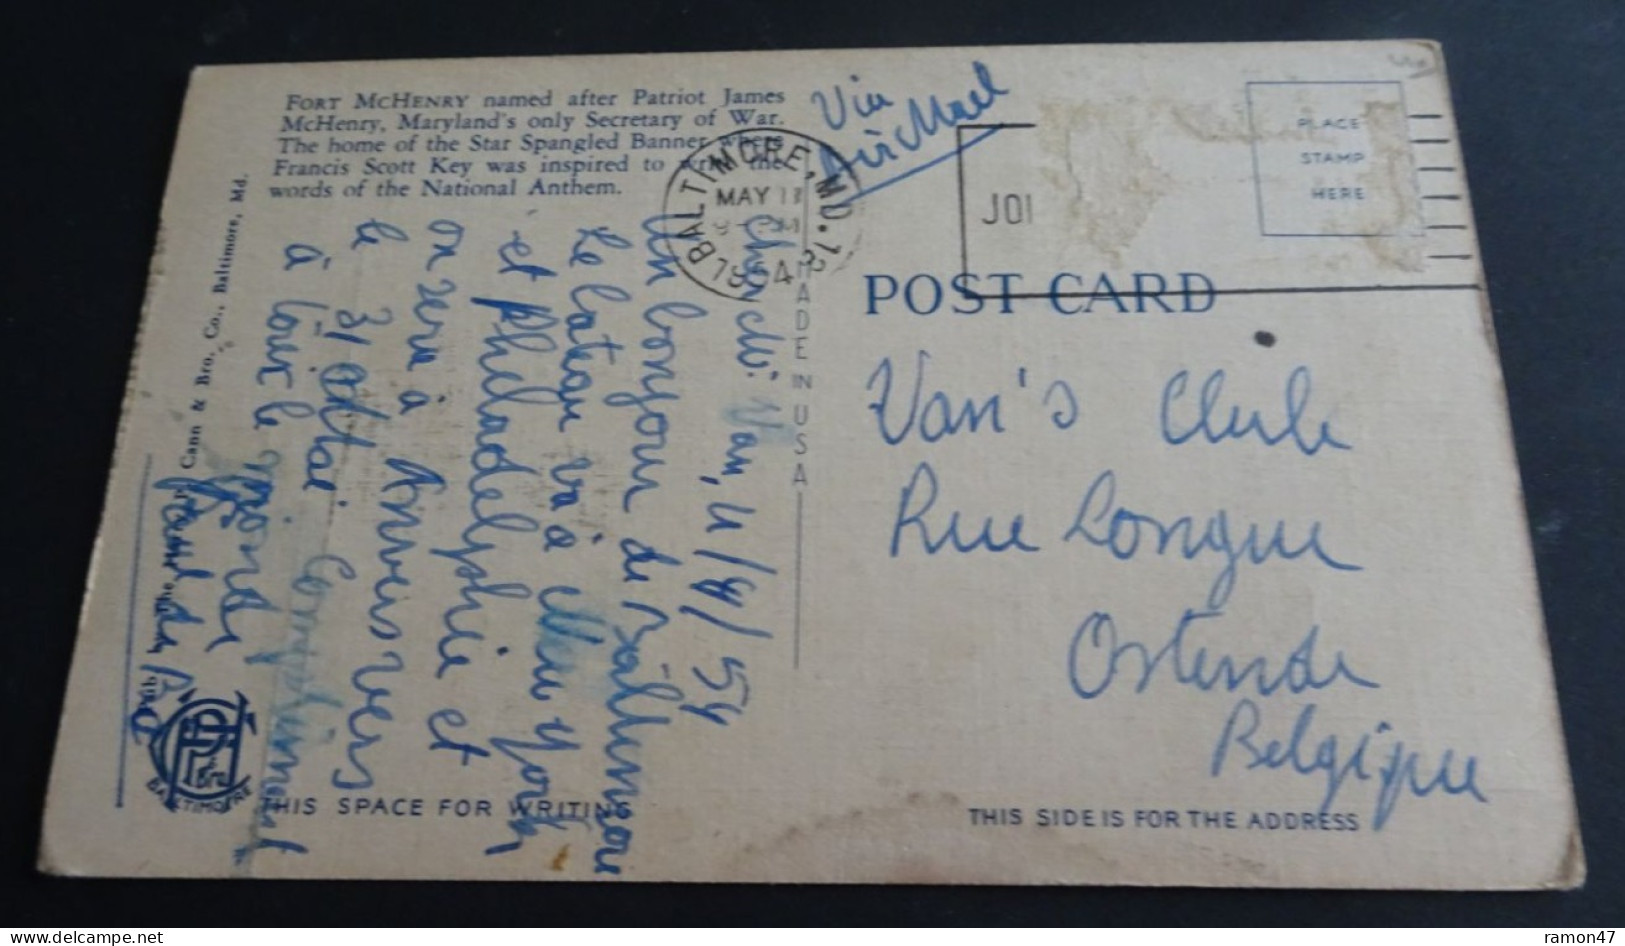 FORT MCHENRY named after Patriot James
McHenry, Maryland's only Secretary of War.
The home of the Star Spangled Banner where
Francis Scott Key was inspired to write the
words of the National Anthem.
Via
Air Mael
BALTIMORE, MD.
MAY 11
1954
JOI
PLACE
STAMP
HERE
POST CARD
MADE IN USA
Cher Van, 11/5/54
Un bonjour de Baltimore
le bateau va à New York
et Philadelphie et
on sera à Anvers vers
le 31 et
à tout le monde
Van's Club
Rue Longue
Ostende
Belgique
Pub. by The Cann & Bro. Co., Baltimore, Md.
BALTIMORE
THIS SPACE FOR WRITING
THIS SIDE IS FOR THE ADDRESS
ramon47